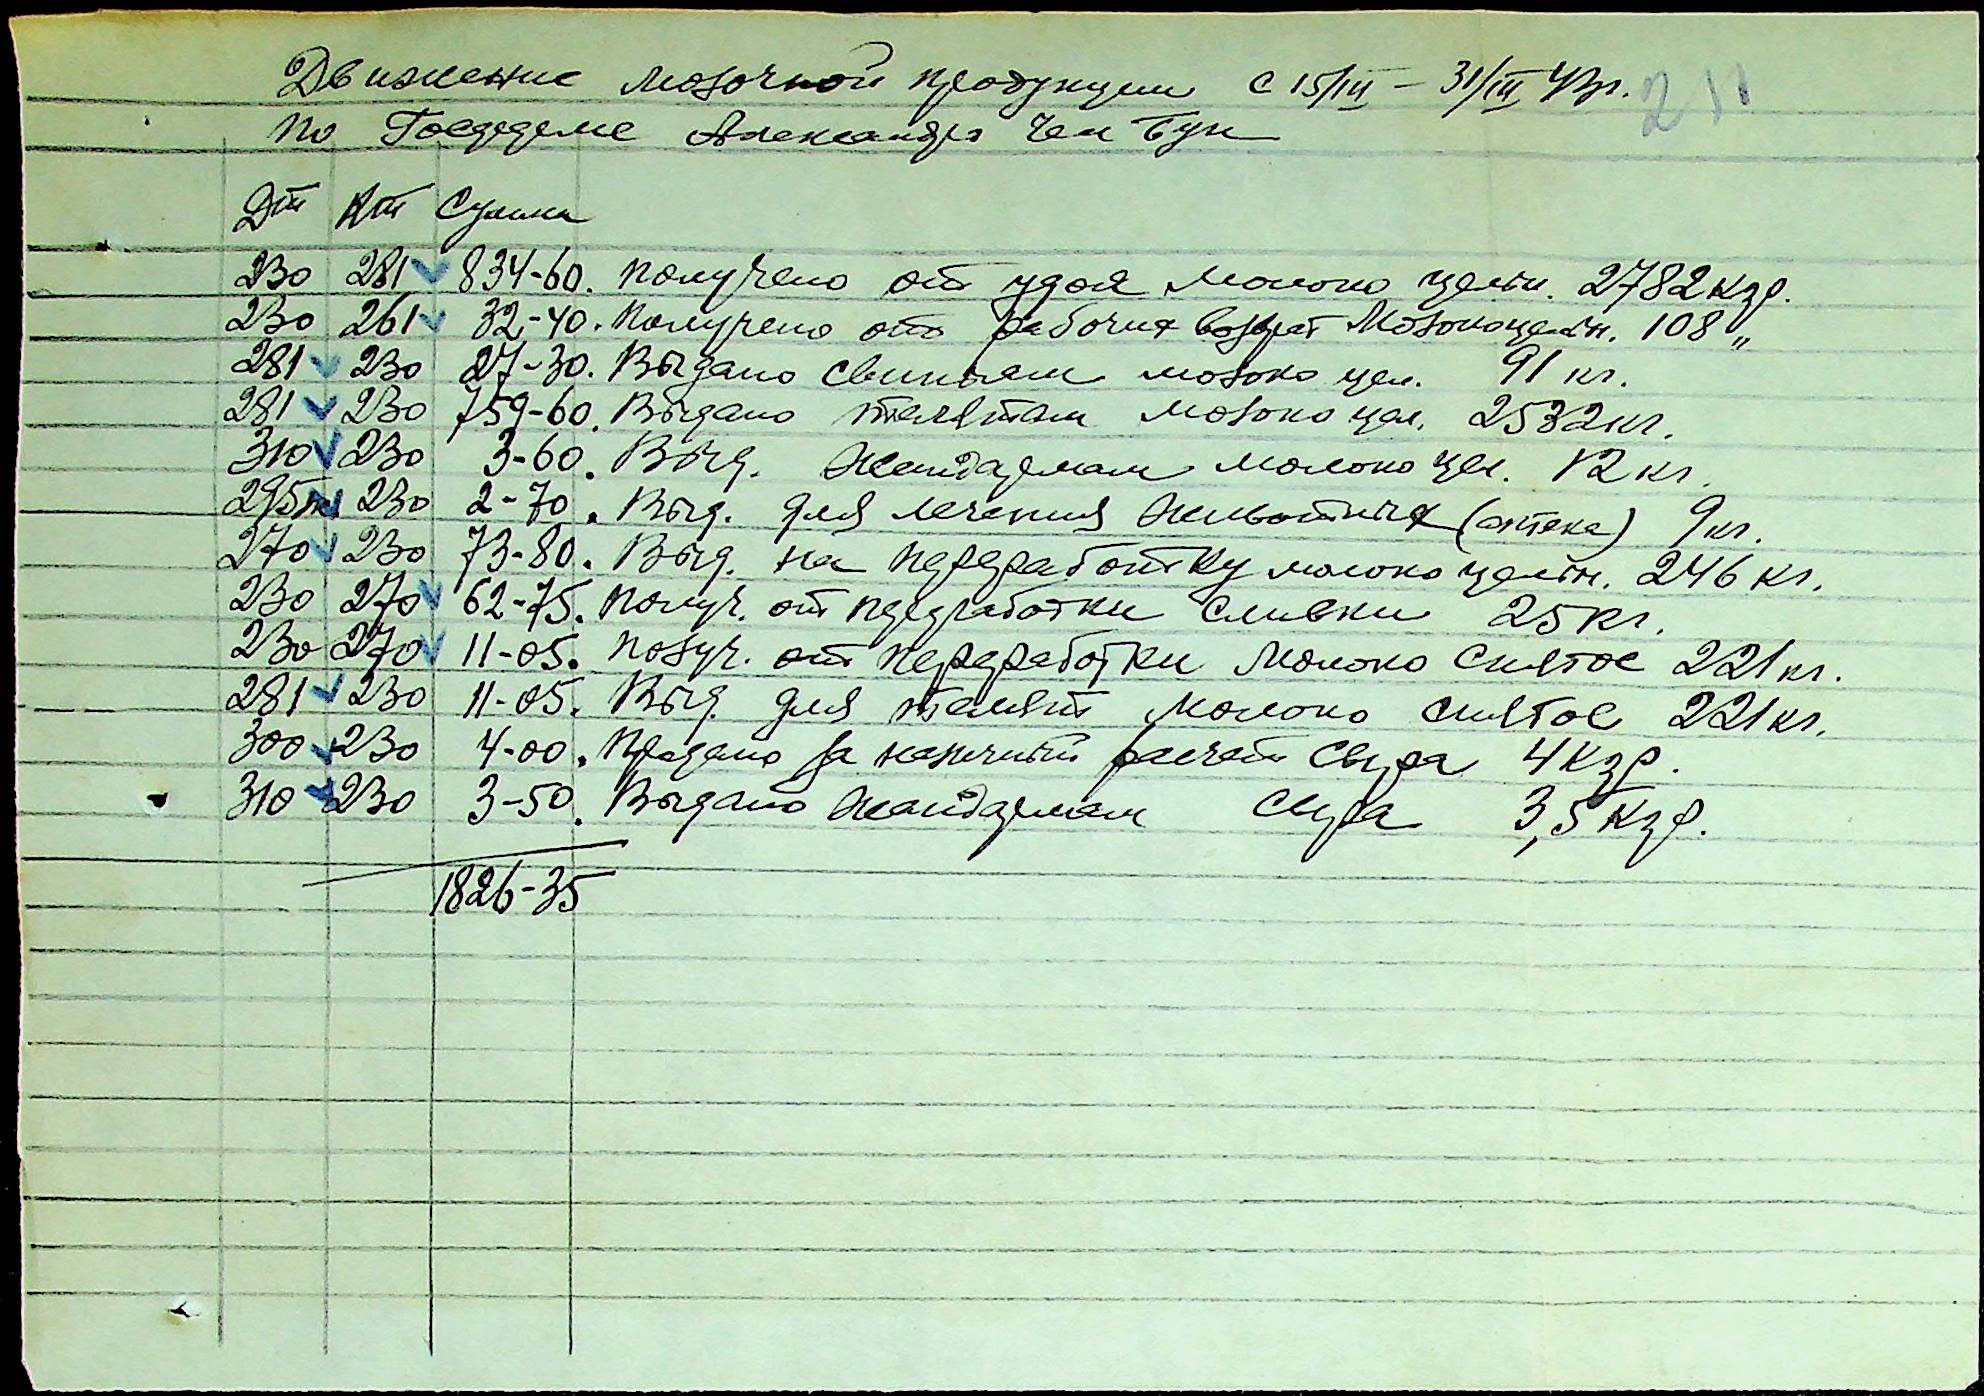 Движение молочной продукции с 15/III – 31/III 43г.
211
По Госферме Александра Чел Бун
Дт Кт Сумма
230 281 834-60. Получено от удоя молоко цельн. 2782 кгр.
230 261 32-40. Получено от рабочих возврат молоко цельн. 108 „
281 230 27-30. Выдано свиньям молоко цел. 91 кг.
281 230 759-60. Выдано телятам молоко цел. 2532 кг.
310 230 3-60. Выд. жандармам молоко цел. 12 кг.
295 230 2-70. Выд. для лечения животных (аптека) 9 кг.
270 230 73-80. Выд. на переработку молоко цельн. 246 кг.
230 270 62-75. Получ. от переработки сливки 25 кг.
230 270 11-05. Получ. от переработки молоко снятое 221 кг.
281 230 11-05. Выд. для телят молоко снятое 221 кг.
300 230 4-00. Продано за наличный расчет сыра 4 кгр.
310 230 3-50. Выдано жандармам сыра 3,5 кгр.
1826-35